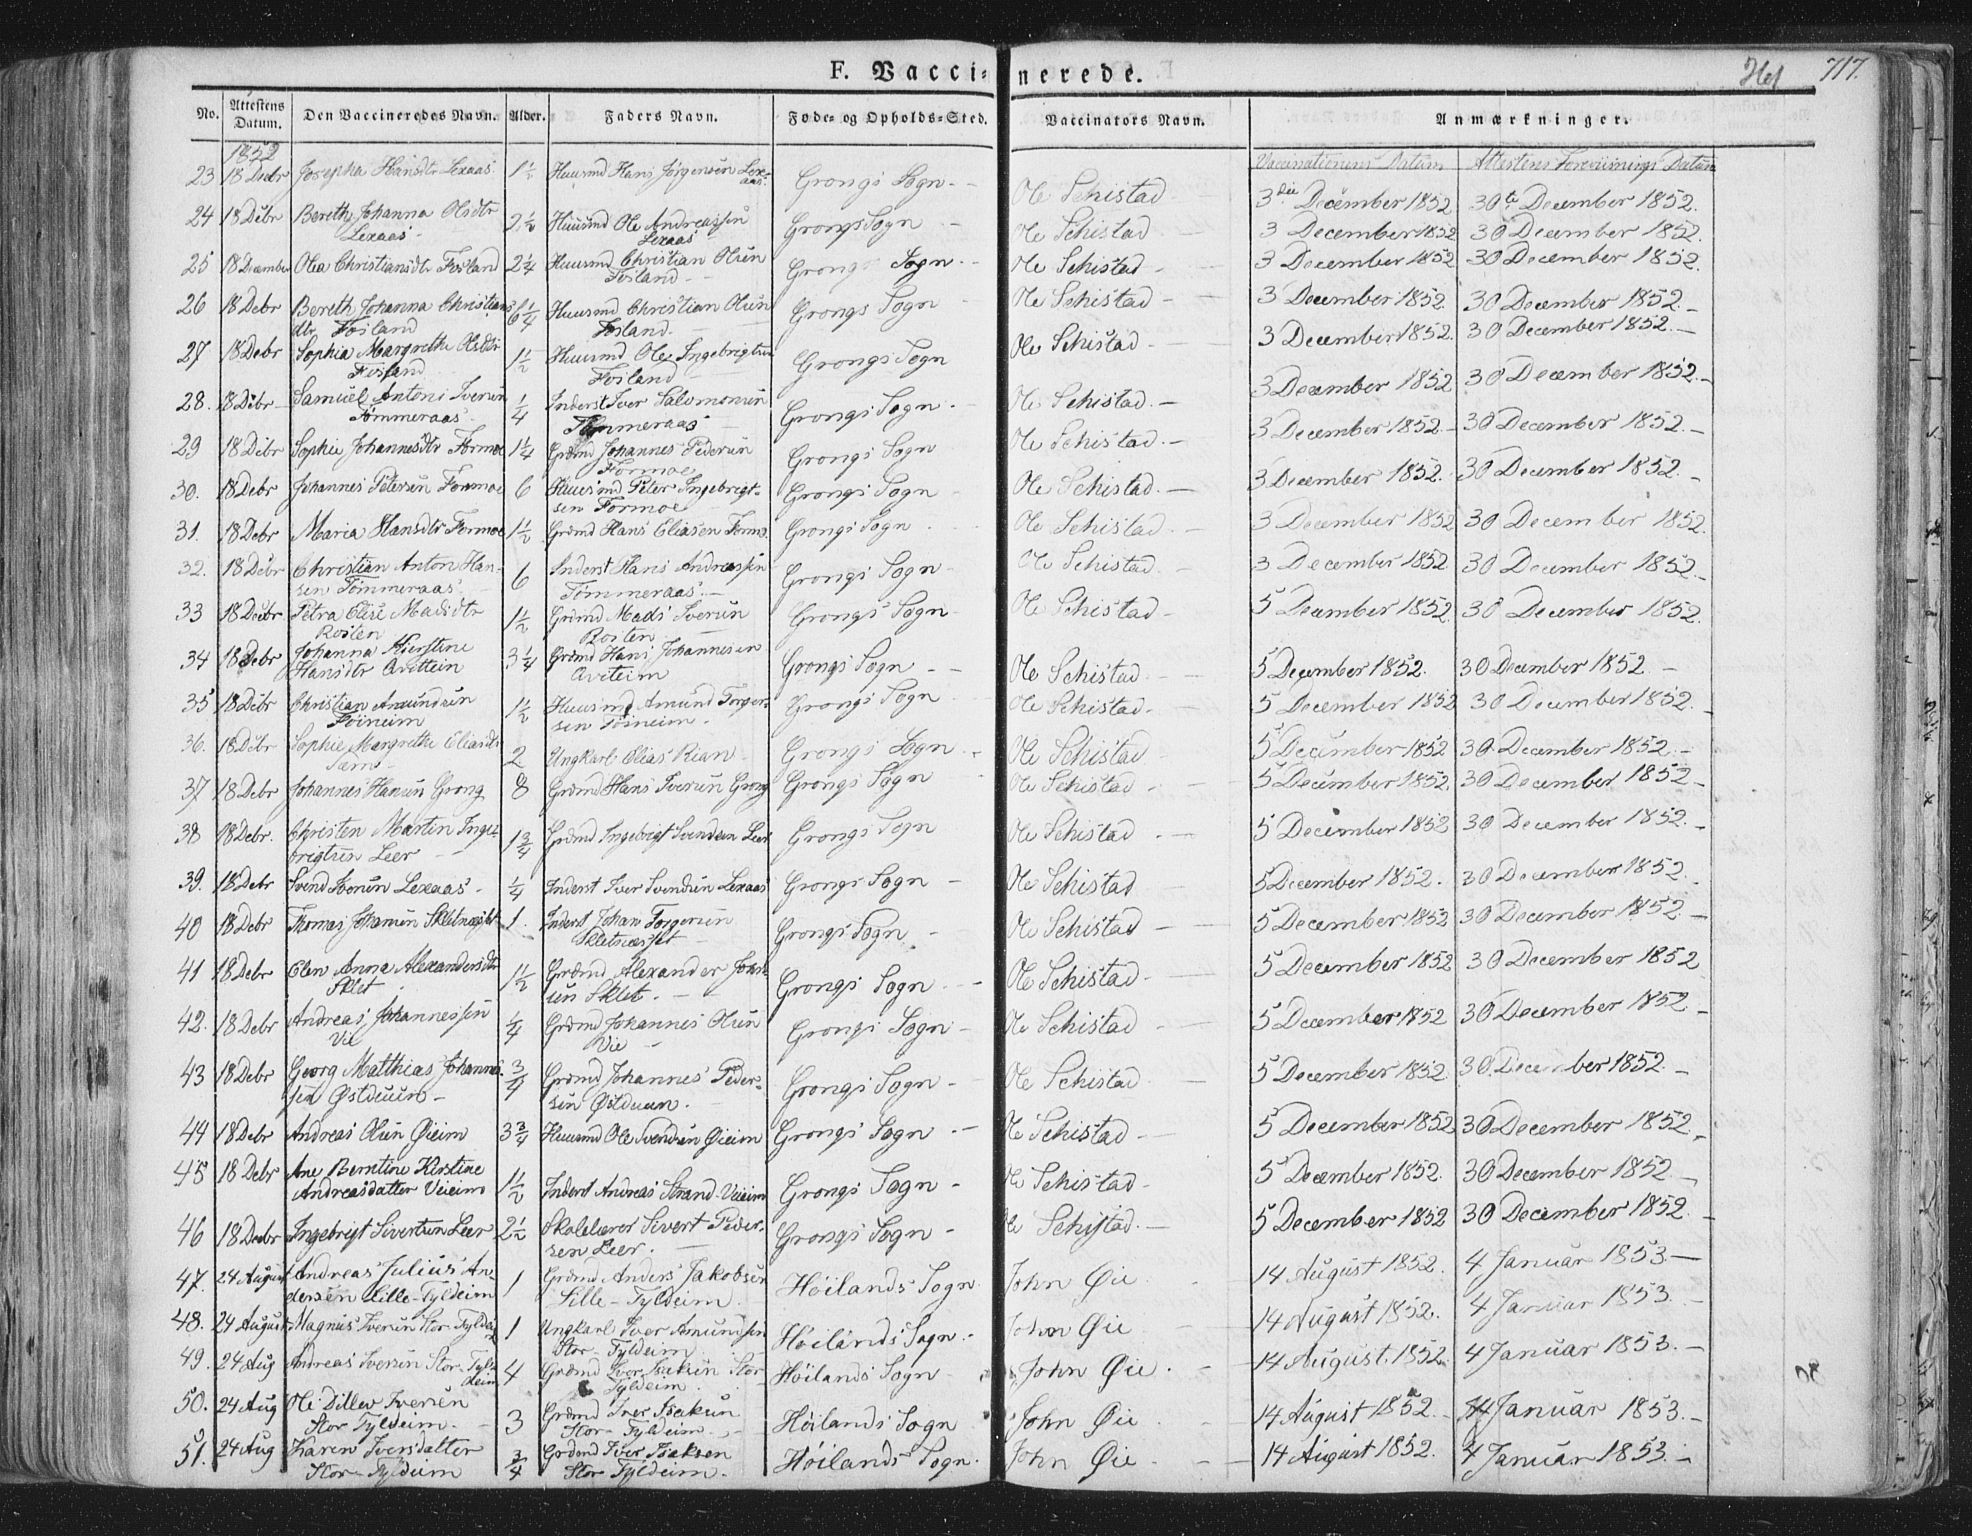 F. Vaccinerede.
261 717.
No. Attestens Datum. Den Vaccineredes Navn. Alder. Faders Navn. Føde- og Opholds-Sted. Vaccinators Navn. Anmærkninger.
1852 Vaccinationens Datum Attestens Datum
23 18 Decbr Josepha Hansdtr Lexaas 1½ Huusmd Hans Jørgensen Lexaas. Grongs Sogn. Ole Schistad 3die December 1852 30te December 1852.
24 18 Debr Bereth Johanna Olsdtr Lexaas 2½ Huusmd Ole Andreassen Lexaas Grongs Sogn Ole Schistad 3 December 1852 30 December 1852.
25 18 December Olea Christiansdtr Fosland 2¼ Huusmd Christian Olsen Fosland Grongs Sogn. Ole Schistad 3 December 1852 30 December 1852.
26 18 Debr Bereth Johanna Christiansdtr Fosland 6¼ Huusmd Christian Olsen Fosland. Grongs Sogn Ole Schistad 3 December 1852. 30 December 1852.
27 18 Debr Sophia Margrethe Olsdtr Fosland 1½ Huusmd Ole Ingebrigtsen Fosland Grongs Sogn Ole Schistad 3 December 1852. 30 December 1852.
28. 18 Debr Samuel Antoni Iversen Tømmeraas ¼ Inderst Iver Salomonsen Tømmeraas Grongs Sogn Ole Schistad. 3 December 1852 30 December 1852.
29 18 Debr Sophie Johannesdtr Formoe 1¼ Grdmd Johannes Pedersen Formoe Grongs Sogn Ole Schistad. 3 December 1852. 30 December 1852.
30. 18 Debr Johannes Petersen Formoe 6 Huusmd Peter Ingebrigtsen Formoe Grongs Sogn Ole Schistad. 3 December 1852. 30 December 1852.
31. 18 Debr Maria Hansdtr Formoe 1½ Grdmd Hans Eliasen Formo. Grongs Sogn Ole Schistad. 3 December 1852 30 December 1852.
32. 18 Debr Christian Anton Hansen Tømmeraas 6 Inderst Hans Andreassen Tømmeraas. Grongs Sogn Ole Schistad. 3 December 1852 30 December 1852.
33 18 Decbr Petra Elise Madsdtr Rosten 1½ Grdmd Mads Iversen Rosten Grongs Sogn Ole Schistad 5 December 1852. 30 December 1852.
34 18 Debr Johanna Kierstine Hansdtr 3¼ Grdmd Hans Johannesen Grongs Sogn Ole Schistad 5 December 1852. 30 December 1852.
35 18 Debr Christian Amundsen 1½ Huusmd Amund Torgersen Grongs Sogn Ole Schistad. 5 December 1852 30 December 1852.
36. 18 Debr Sophie Margrethe Eliasdtr 2 Ungkarl Elias Rian Grongs Sogn Ole Schistad 5 December 1852 30 December 1852.
37 18 Debr Johannes Hansen Grong 8 Grdmd Hans Iversen Grong Grongs Sogn Ole Schistad 5 December 1852. 30 December 1852
38 18 Debr. Christen Martin Ingebrigtsen Leer 1¾ Grdmd Ingebrigt Svendsen Leer Grongs Sogn Ole Schistad 5 December 1852 30 December 1852.
39. 18 Debr Svend Iversen Lexaas ¼ Inderst Iver Svendsen Lexaas Grongs Sogn Ole Schistad 5 December 1852. 30 December 1852.
40 18 Debr Thomas Johansen 1. Inderst Johan Torgersen Grongs Sogn Ole Schistad 5 December 1852 30 December 1852.
41 18 Debr Elen Anna Alexandersdtr Sklet 1½ Grdmd Alexander Johnsen Sklet. Grongs Sogn Ole Schistad 5 December 1852 30 December 1852
42. 18 Debr Andreas Johannessen Vie ¼ Grdmd Johannes Olsen Vie Grongs Sogn Ole Schistad 5 December 1852 30 December 1852
43 18 Debr Georg Matthias Johannessen Østduun ¾ Grdmd Johannes Pedersen Østduun. Grongs Sogn Ole Schistad 5 December 1852 30 December 1852.
44 18 Debr Andreas Olsen Øieim 3¾ Huusmd Ole Svendsen Øieim Grongs Sogn Ole Schistad 5 December 1852 30 December 1852
45 18 Debr Ane Berntine Kirstine Andreasdatter Veieim 1½ Inderst Andreas Strand Veieim Grongs Sogn Ole Schistad 5 December 1852. 30 December 1852
46 18 Decbr Ingebrigt Sivertsen Leer 2½ Skolelærer Sivert Pedersen Leer. Grongs Sogn Ole Schistad. 5 December 1852 30 December 1852.
47. 24 August Andreas Julius Andersen Lille-Tyldeim 1 Grdmd Anders Jakobsen Lille-Tyldeim. Høilands Sogn. John Øie 14 August 1852. 4 Januar 1853
48. 24 August Magnus Iversen Stor-Tyldeim 1 Ungkarl Iver Amundsen Stor-Tyldeim Høilands Sogn. John Øie 14 August 1852. 4 Januar 1853.
49. 24 Aug Andreas Iversen Stor-Tyldeim 4 Grdmd Iver Isaksen Stor Tyldeim. Høilands Sogn John Øie. 14 August. 1852. 4 Januar 1853.
50. 24 Aug Ole Ditlev Iversen Stor Tyldeim. 3 Grdmd Iver Isaksen Stor-Tyldeim. Høilands Sogn John Øie 14 August 1852. 4 Januar 1853.
51. 24 Aug Karen Iversdatter Stor-Tyldeim ¾ Grdmd Iver Isaksen Stor Tyldeim. Høilands Sogn. John Øie 14 August 1852. 4 Januar 1853.